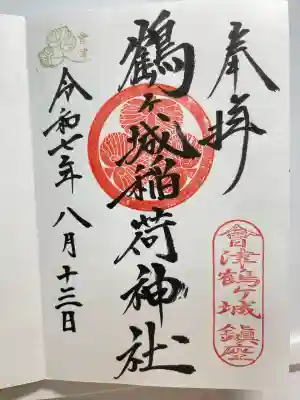 奉拝
會津鶴ヶ城鎮座
鶴ヶ城稲荷神社
令和七年八月十三日
會津